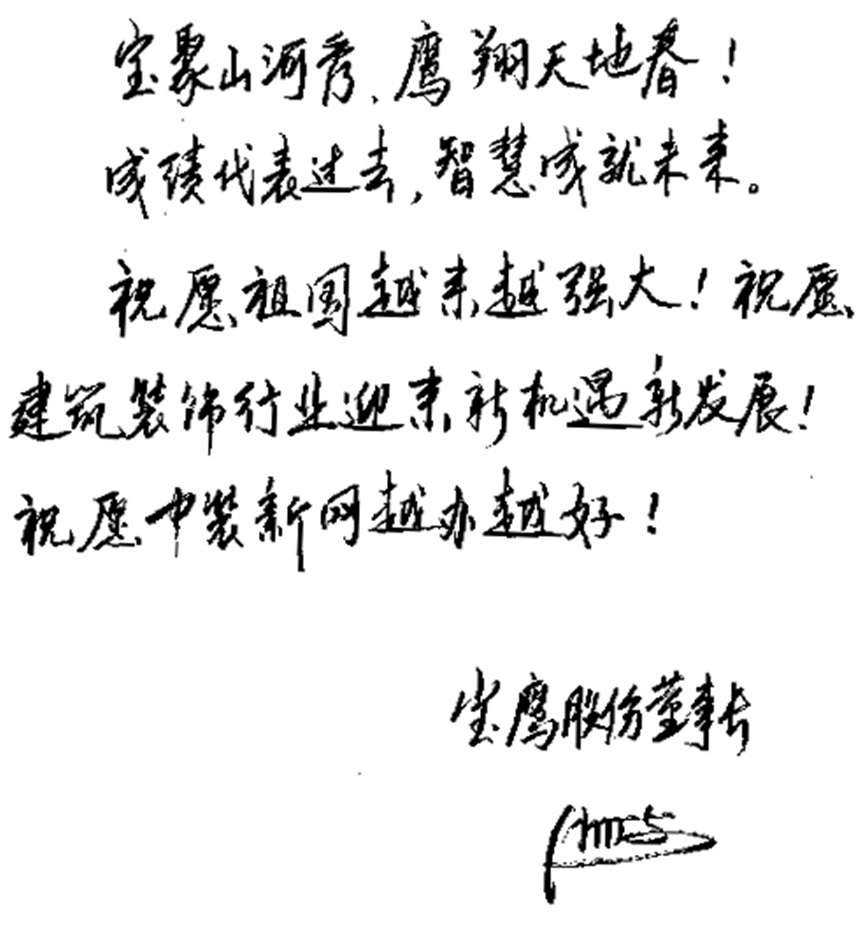 宝聚山河秀、鹰翔天地春！
成绩代表过去，智慧成就未来。
祝愿祖国越来越强大！祝愿
建筑装饰行业迎来新机遇新发展！
祝愿中装新网越办越好！
宝鹰股份董事长